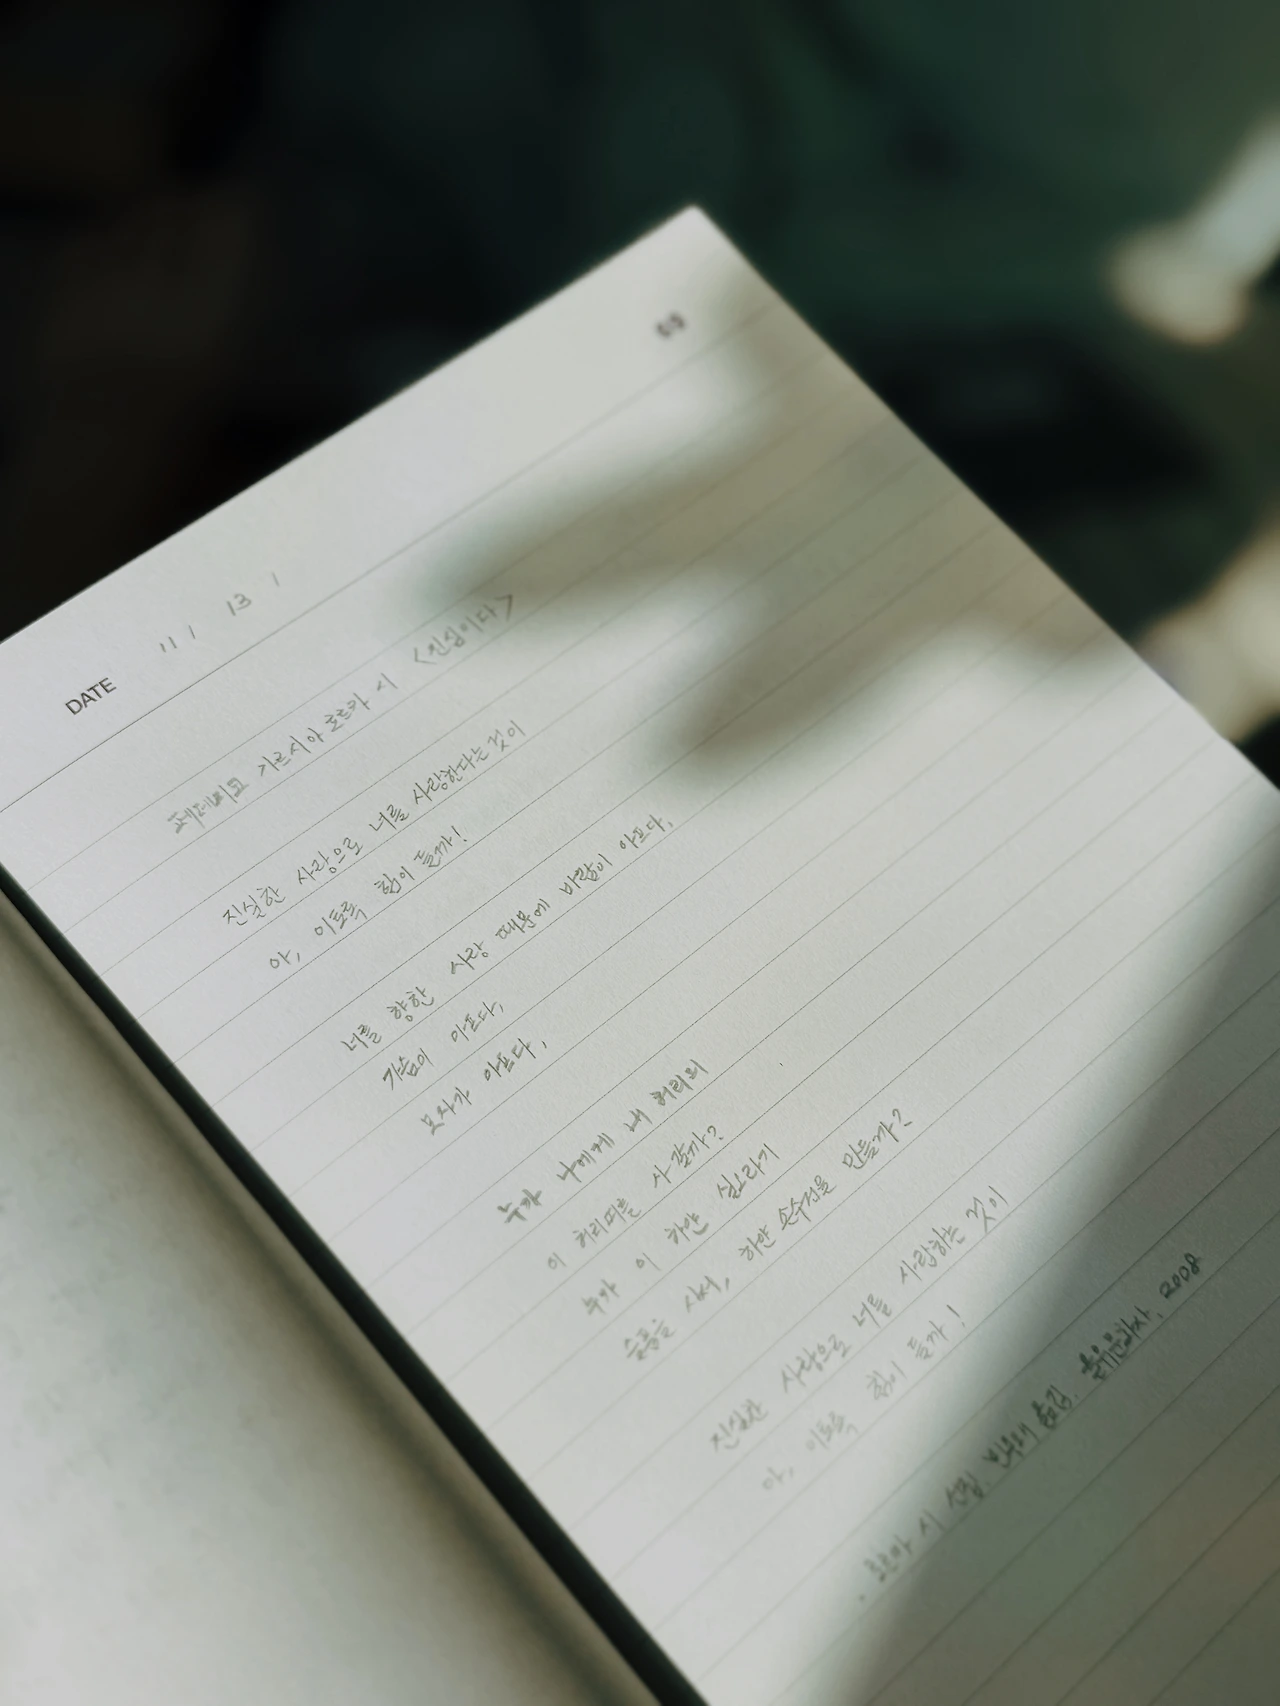 DATE 11 / 13 /
페데리코 가르시아 로르카 시 <진실이다>
진실한 사랑으로 너를 사랑한다는 것이
아, 이토록 힘이 들까!
너를 향한 사랑 때문에 바람이 아프다,
가슴이 아프다,
모자가 아프다,
누가 나에게 내 허리의
이 허리띠를 사 갈까?
누가 이 하얀 실오라기
슬픔을 사서, 하얀 손수건을 만들까?
진실한 사랑으로 너를 사랑하는 것이
아, 이토록 힘이 들까!
시 선집. 민용태 옮김. 을유문화사. 2008